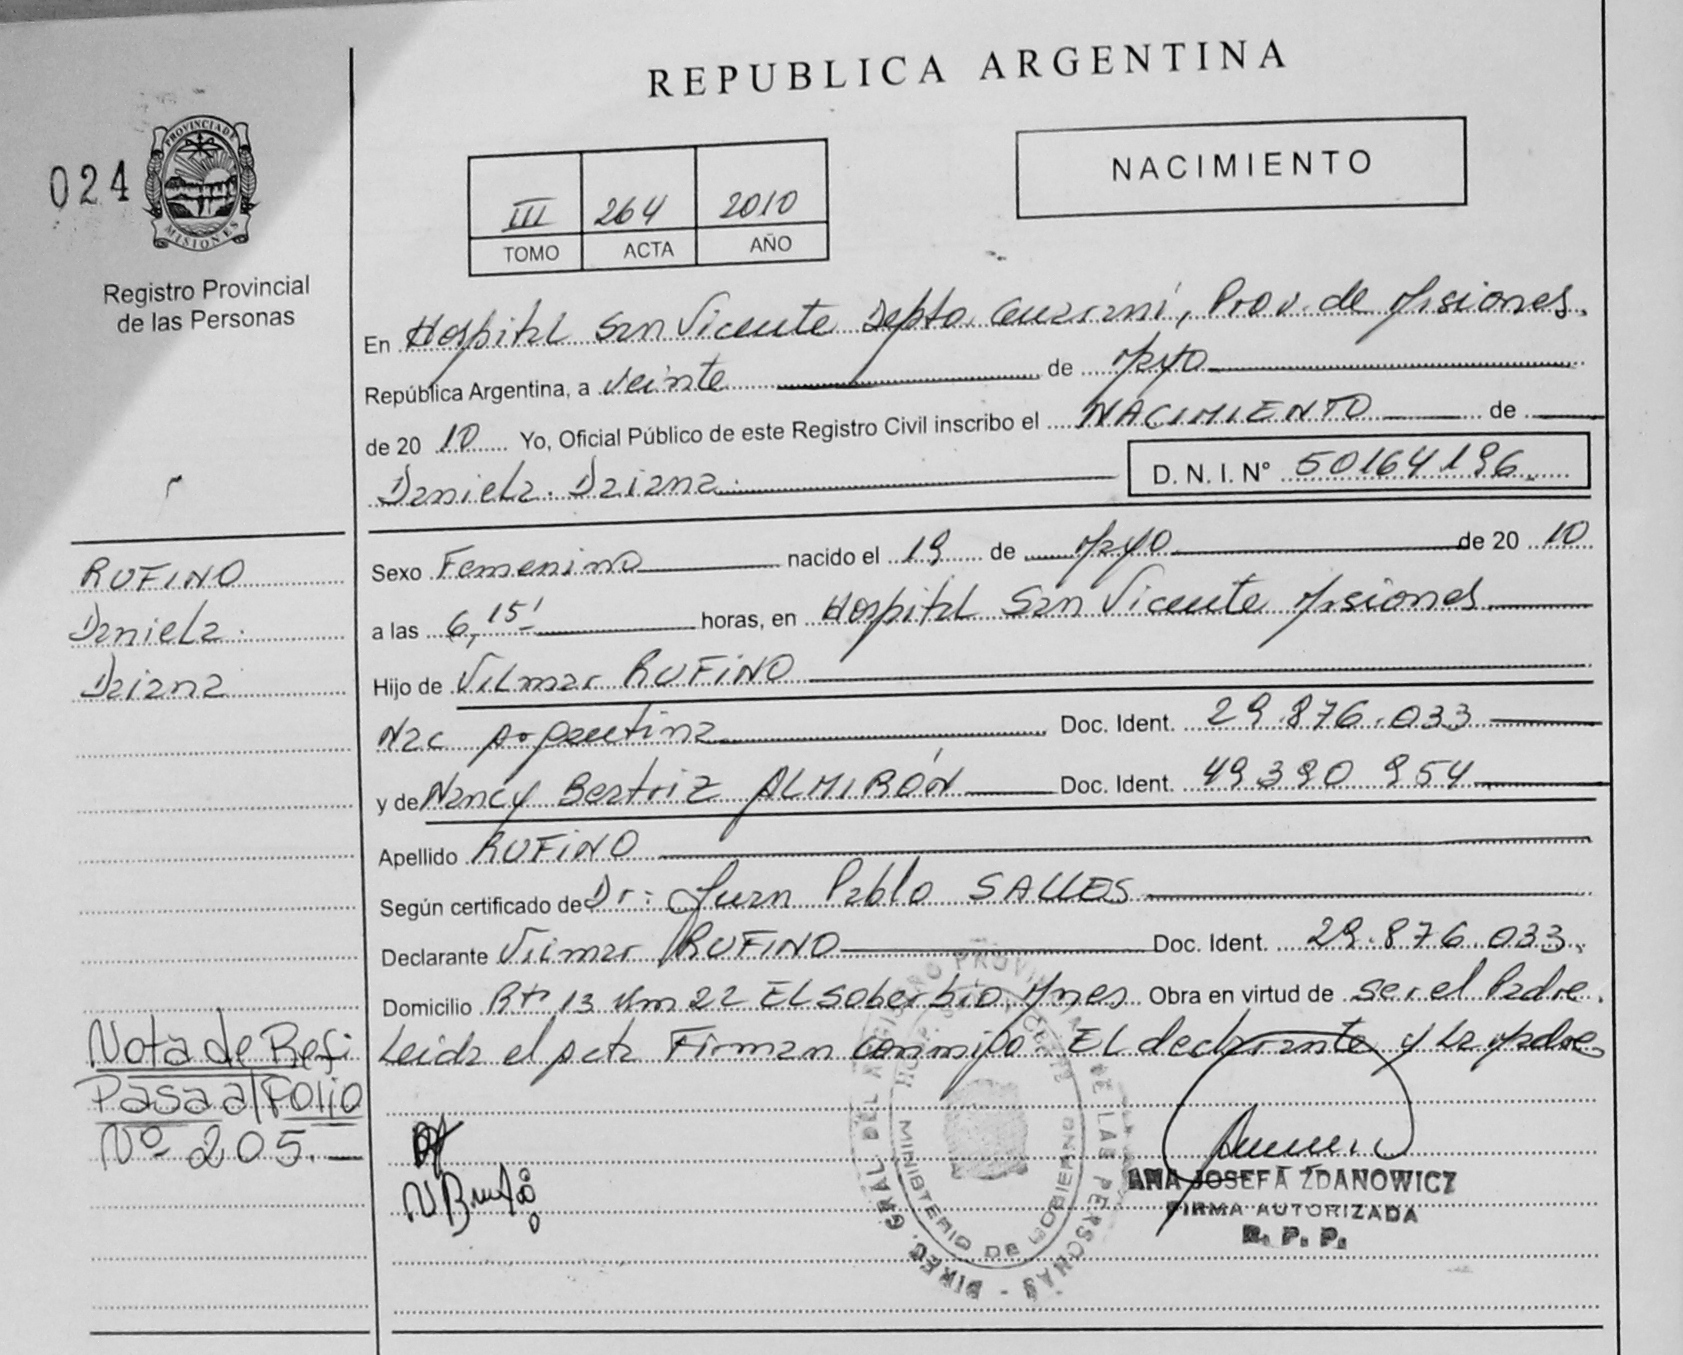 REPUBLICA ARGENTINA
024
PROVINCIA DE
MISIONES
Registro Provincial
de las Personas
III 264 2010
TOMO ACTA AÑO
NACIMIENTO
En Hospital San Vicente Depto Guarani, Prov. de Misiones.
República Argentina, a veinte de Mayo
de 20 10 Yo, Oficial Público de este Registro Civil inscribo el NACIMIENTO de
Daniela. Daiana. D. N. I. Nº 50164196
Sexo Femenino nacido el 19 de Mayo de 20 10
a las 6,15' horas, en Hospital San Vicente Misiones
Hijo de Vilmar RUFINO
Nac Argentina Doc. Ident. 29.876.033
y de Nancy Beatriz ALMIRÓN Doc. Ident. 49390954
Apellido RUFINO
Según certificado de Dr: Juan Pablo SALLES
Declarante Vilmar RUFINO Doc. Ident. 29.876.033.
Domicilio Rta 13 Km 22 El Soberbio Mnes Obra en virtud de ser el Padre.
Leida el acta Firman conmigo El declarante y la Madre
RUFINO
Daniela.
Daiana
Nota de Refi
Pasa al Folio
Nº 205.
ANA JOSEFA ZDANOWICZ
FIRMA AUTORIZADA
R. P. P.
DIREC. GRAL. DEL REGISTRO PROVINCIAL DE LAS PERSONAS
MINISTERIO DE GOBIERNO